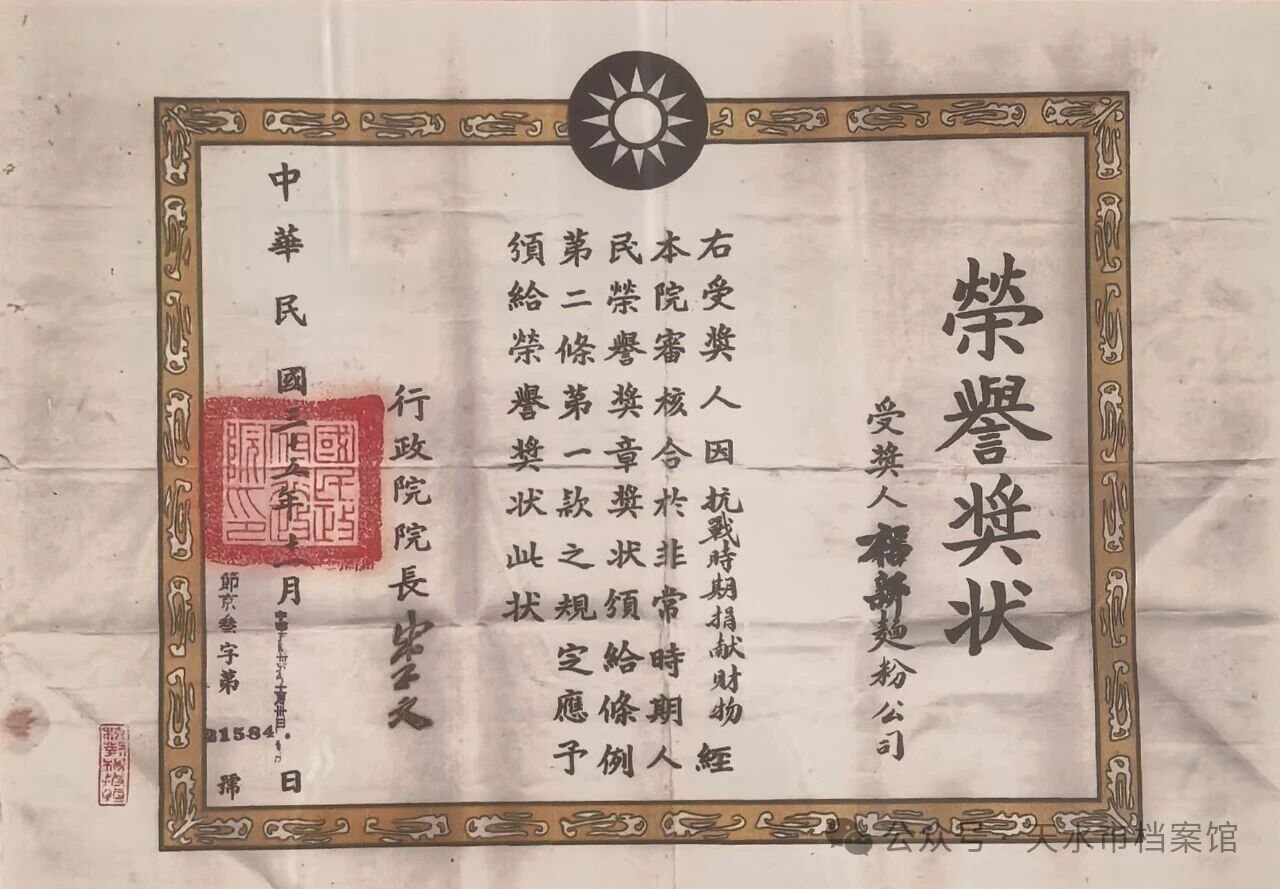 榮譽奨状
受奨人福新麵粉公司
右受奨人因抗戰時期捐献財物經
本院審核合於非常時期人
民榮譽奨章奨状頒給條例
第二條第一款之規定應予
頒給榮譽奨状此状
行政院院長宋子文
中華民國三十五年十二月 日
節京叁字第21584號
公众号·天水市档案馆